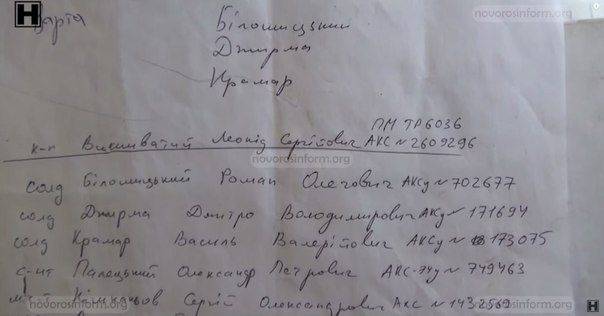 novorosinform.org
Н
варта
Білошицький
Джирма
Крамар
ПМ ТР6036
к-н Вишиватий Леонід Сергійович АКС №2609296
novorosinform.org
солд Білошицький Роман Олегович АКСу № 702677
солд Джирма Дмитро Володимирович АКСу № 171694
солд Крамар Василь Валерійович АКСу № 173075
с-нт Палецький Олександр Петрович АКС-74у № 749463
Сергій Олександрович АКС № 1432569
novorosinform.org novorosinform.org Н